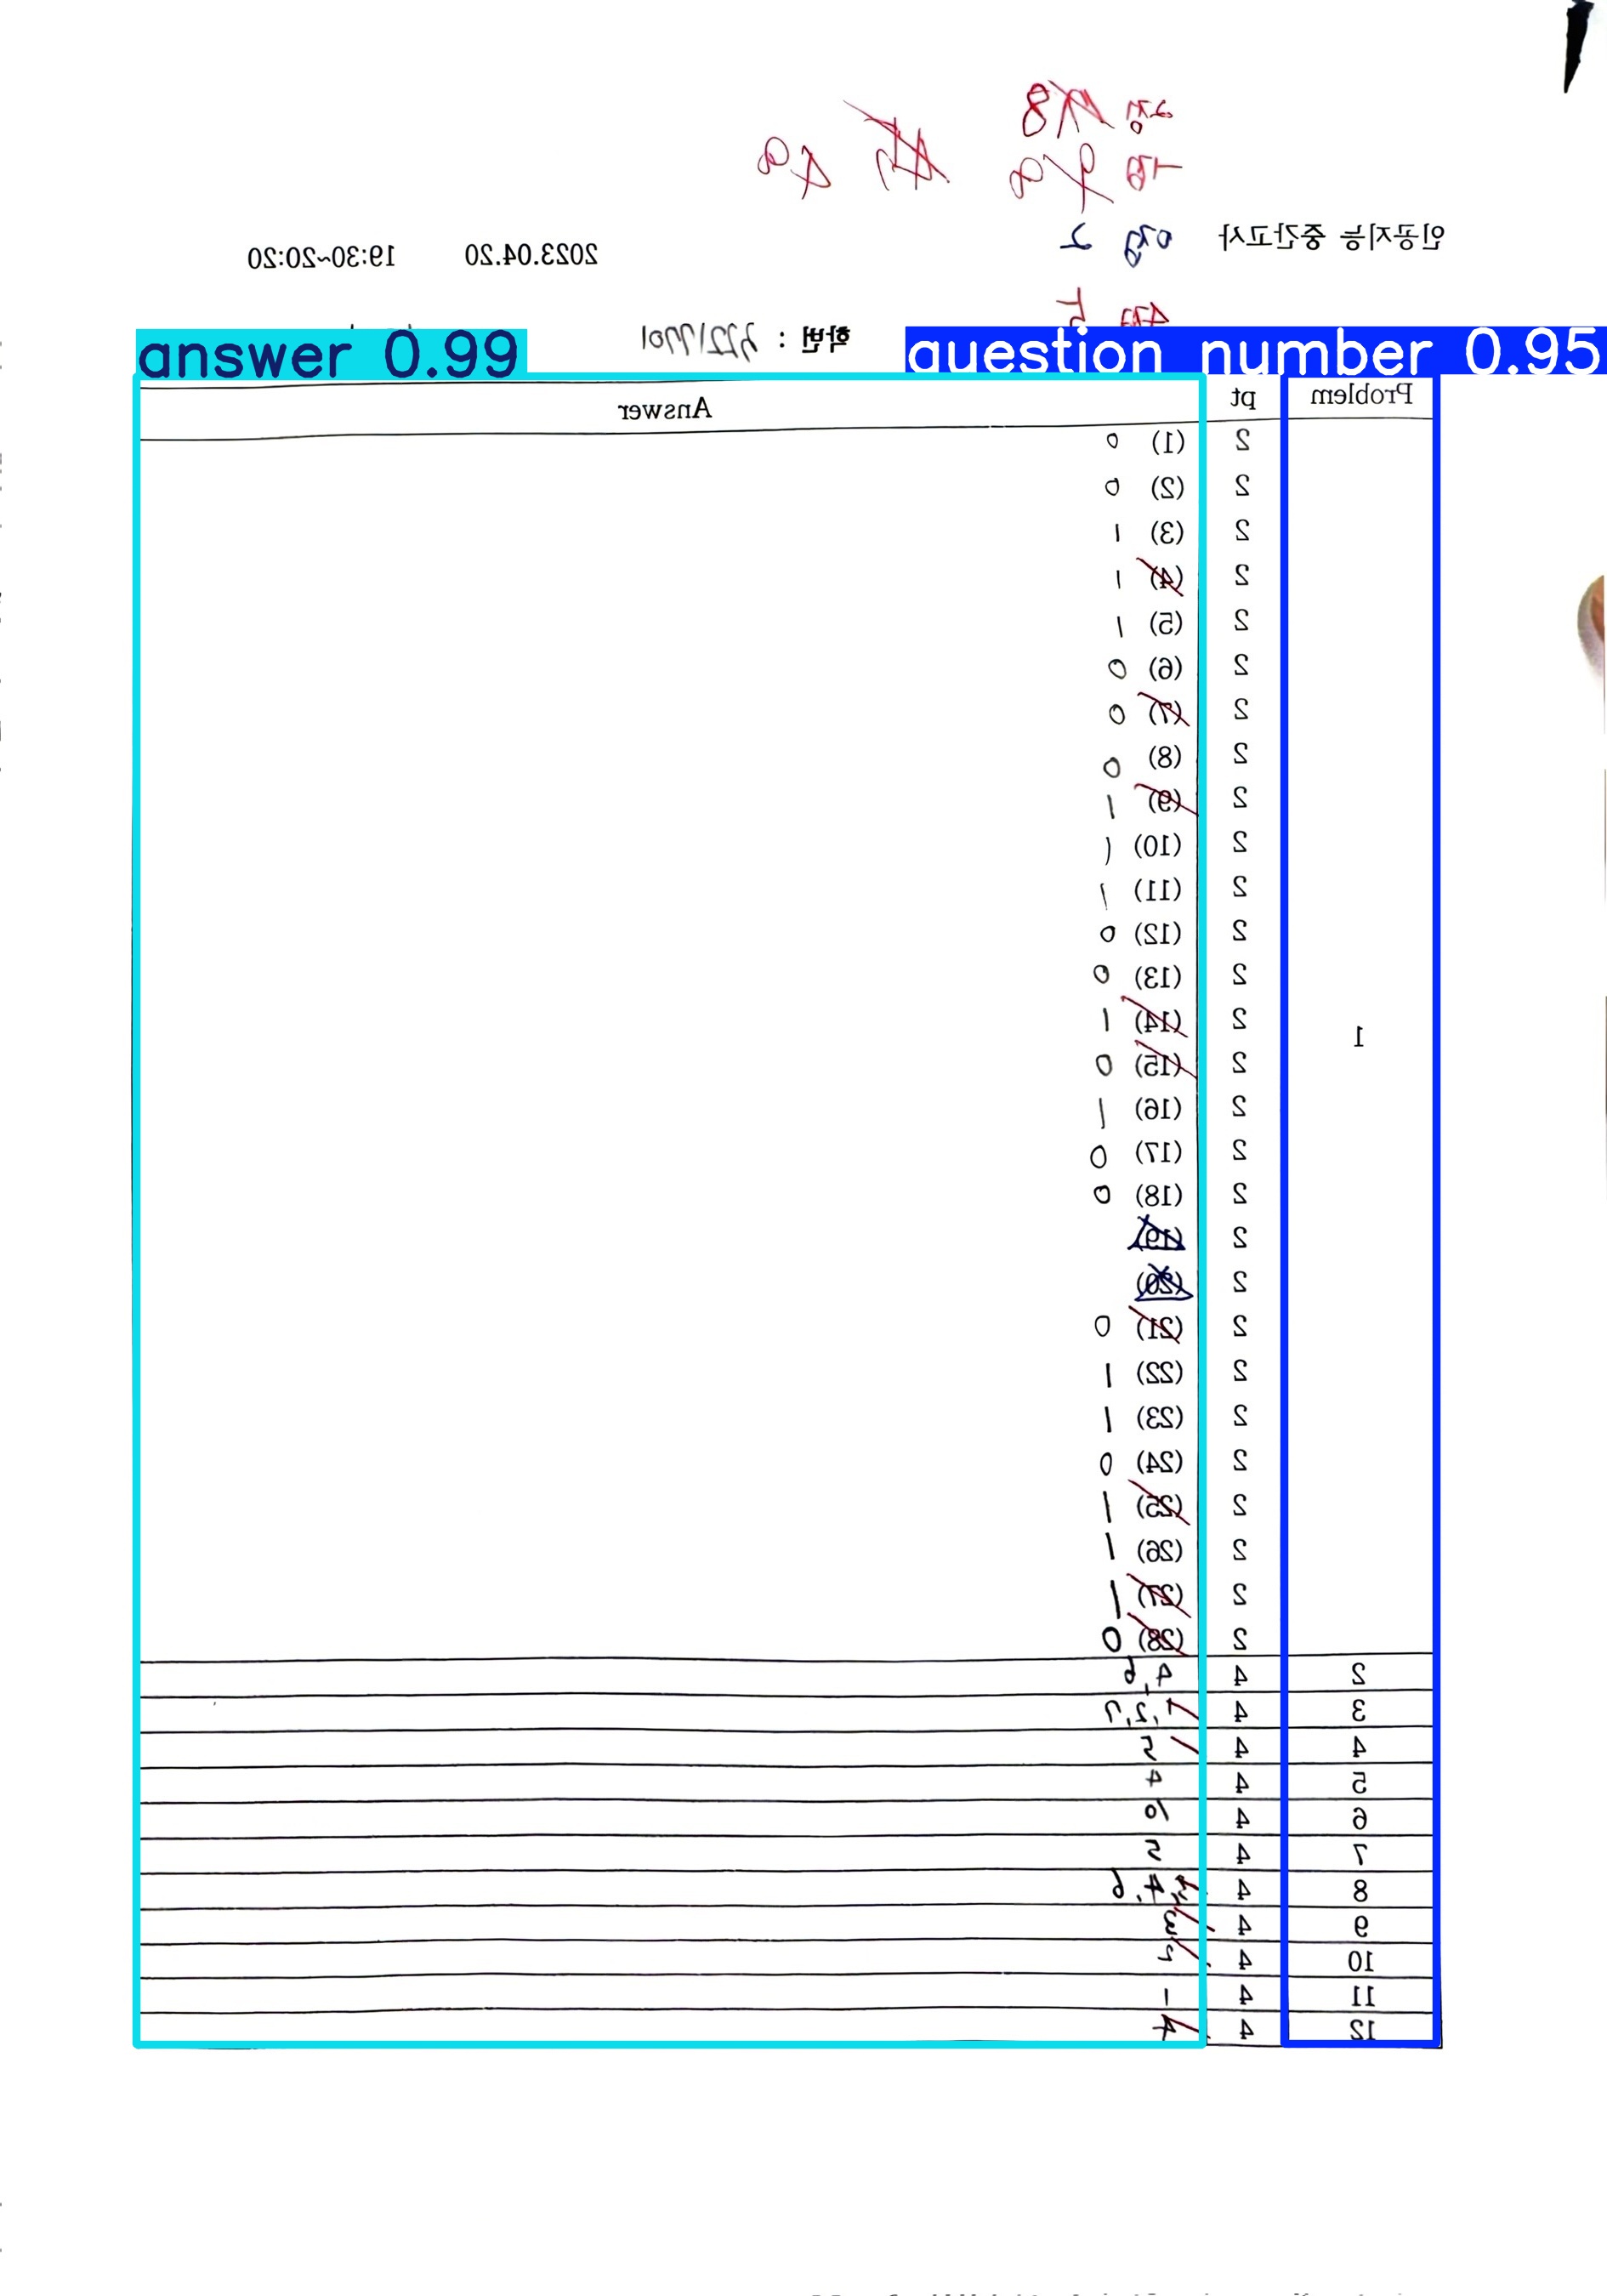 인공지능 중간고사 2023.04.20 19:30~20:20
학번 :
answer 0.99
question number 0.95
Problem pt Answer
1
2 (1) 0
2 (2) 0
2 (3) 1
2 (4) 1
2 (5) 1
2 (6) 0
2 (7) 0
2 (8) 0
2 (9) 1
2 (10) 1
2 (11) 1
2 (12) 0
2 (13) 0
2 (14) 1
2 (15) 0
2 (16) 1
2 (17) 0
2 (18) 0
2 (19)
2 (20)
2 (21) 0
2 (22) 1
2 (23) 1
2 (24) 0
2 (25) 1
2 (26) 1
2 (27) 1
2 (28) 0
2 4 4, 6
3 4
4 4 2
5 4 4
6 4 6
7 4 2
8 4
9 4 3
10 4
11 4 -
12 4 4